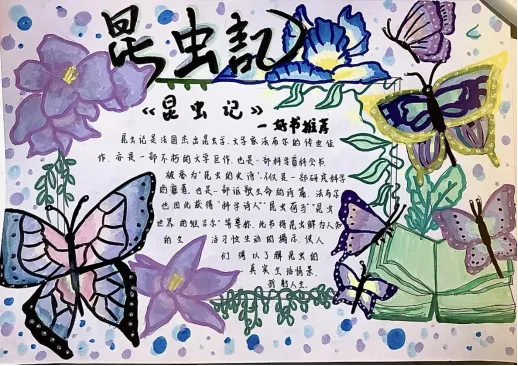 昆虫記
《昆虫记》
—好书推荐
昆虫记是法国杰出昆虫学、文学家法布尔的传世佳
作，亦是一部不朽的文学巨作，也是一部科学百科全书
被誉为“昆虫的史诗”，不仅是一部研究科学
的著作，也是一部讴歌生命的诗篇，法布尔
也因此获得“科学诗人”“昆虫荷马”“昆虫
世界的维吉尔”等尊称，此书将昆虫鲜为人知
的生活习性生动的揭示，使人
们得以了解昆虫的
真实生活情景